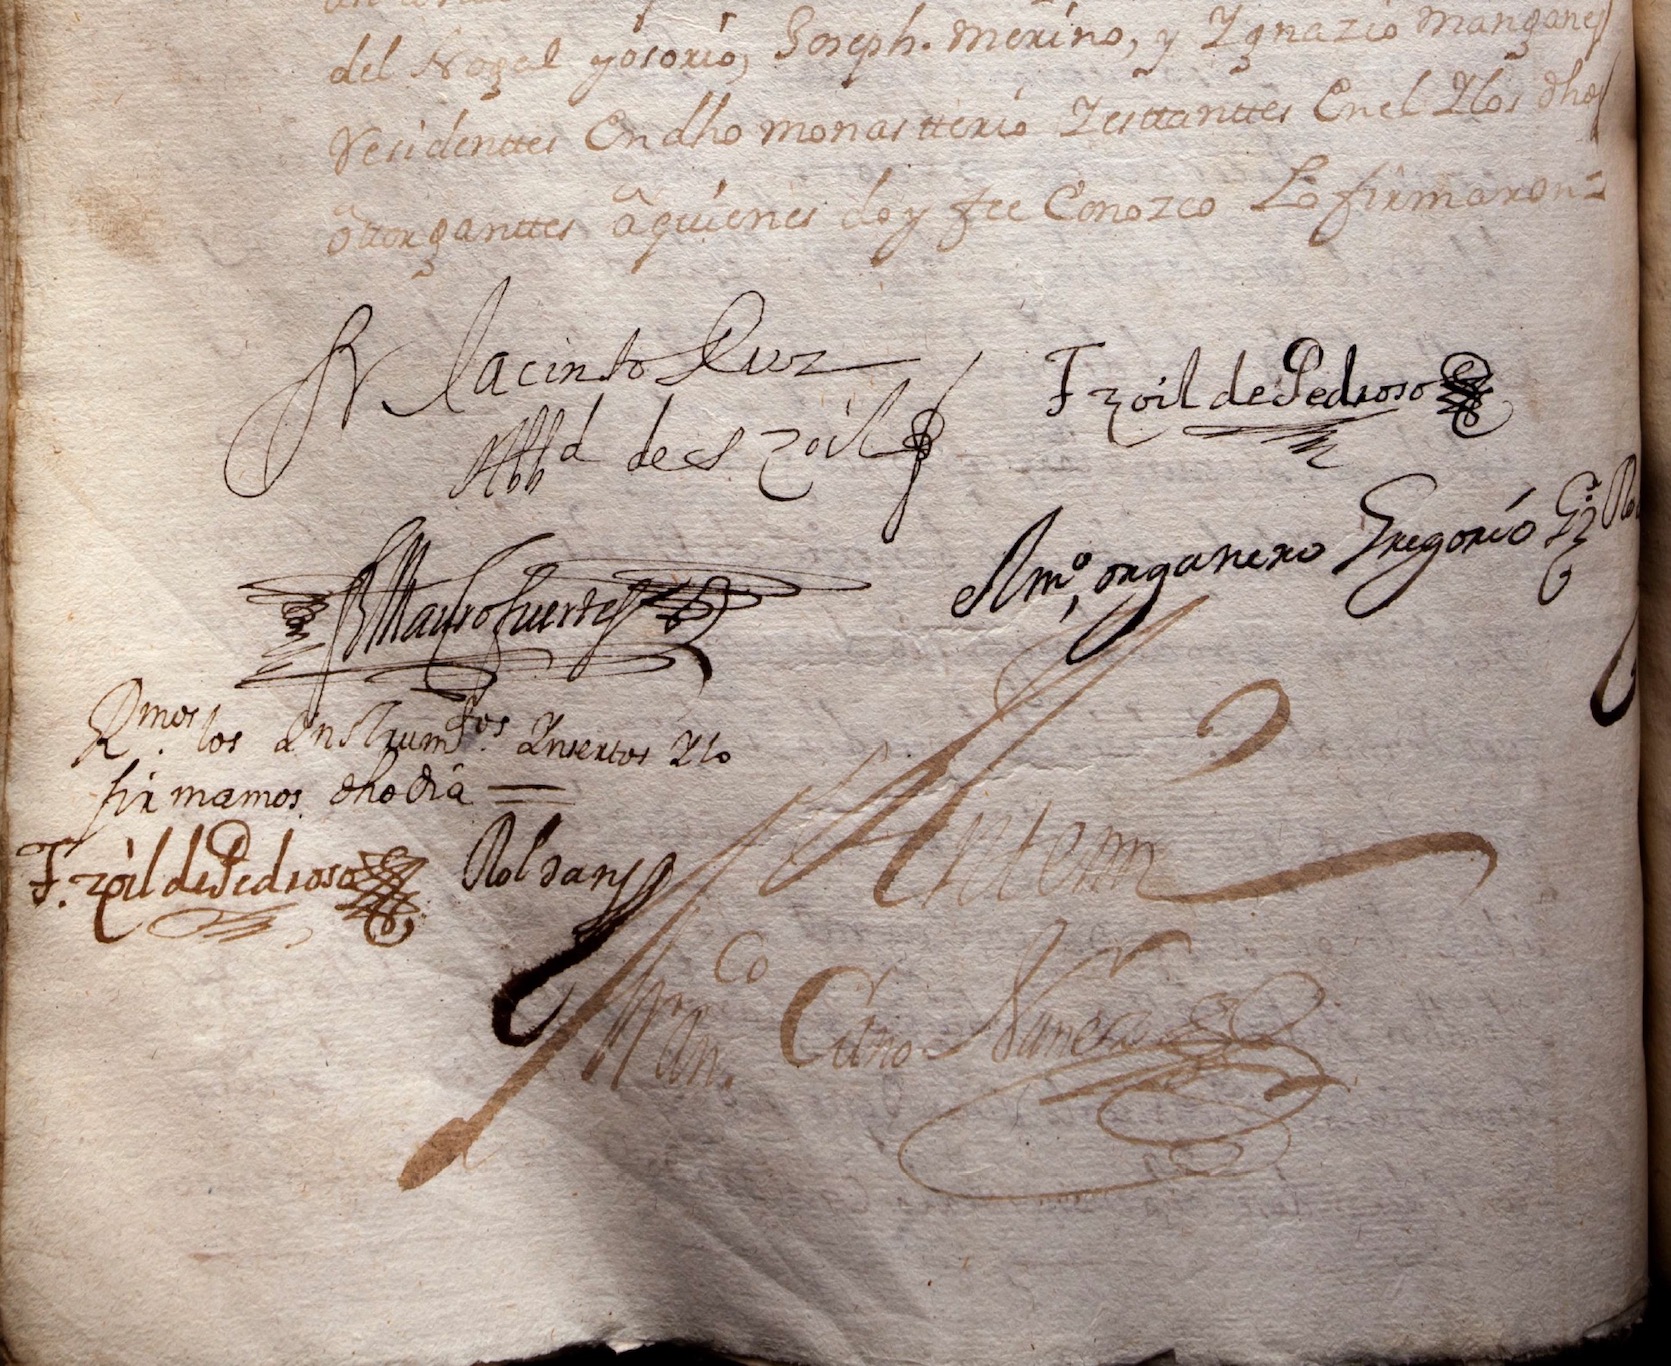 del Nogal y osorio, Joseph. Merino, y Ygnazio Manganes
Residenttes En dho monastterio Y esttanttes En el Y los dhos
ottorganttes a quienes doy fee Conozco Lo firmaron =
Fr Jacinto Ruiz
Abbd de S Zoil
F zoil de Pedroso
Amo, organero Gregorio Gz
Fr Mauro fuertes
Rmos. los instrumtos. Ynsertos Y lo
firmamos dho dia =
F. zoil de Pedroso Roldan
Antemi
Fran.co Cano Nuñez